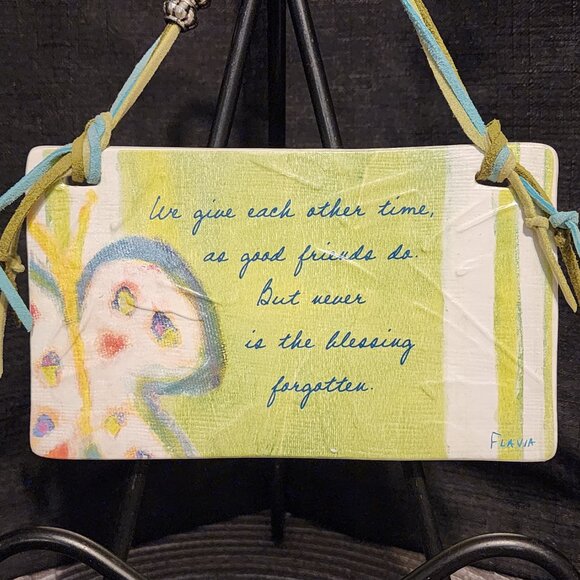 We give each other time,
as good friends do.
But never
is the blessing
forgotten.
FLAVIA